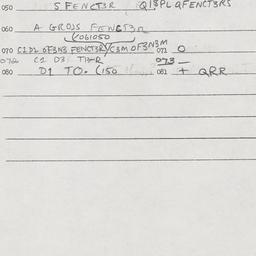 050 S FENCT3R Q13PL QFENCT3RS
060 A GROSS FENCT3R
(061050
070 C1D1 OF3N3 FENCT3R/C3M OF3N3M 071 O
072 C1 D3 THR 073 —
080 D1 TO. (150 081 + QRR